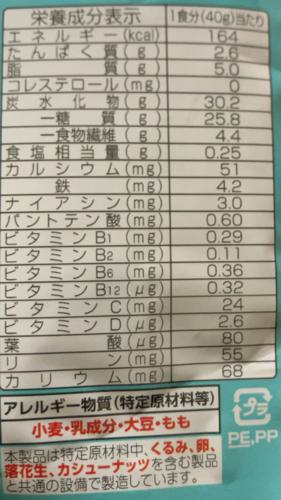 栄養成分表示 1食分(40g)当たり
エネルギー(kcal) 164
たんぱく質(g) 2.6
脂質(g) 5.0
コレステロール(mg) 0
炭水化物(g) 30.2
－糖質(g) 25.8
－食物繊維(g) 4.4
食塩相当量(g) 0.25
カルシウム(mg) 51
鉄(mg) 4.2
ナイアシン(mg) 3.0
パントテン酸(mg) 0.60
ビタミンB1(mg) 0.29
ビタミンB2(mg) 0.11
ビタミンB6(mg) 0.36
ビタミンB12(μg) 0.32
ビタミンC(mg) 24
ビタミンD(μg) 2.6
葉酸(μg) 80
リン(mg) 55
カリウム(mg) 68
アレルギー物質(特定原材料等)
小麦・乳成分・大豆・もも
プラ
PE,PP
本製品は特定原材料中、くるみ、卵、
落花生、カシューナッツを含む製品
と共通の設備で製造しています。